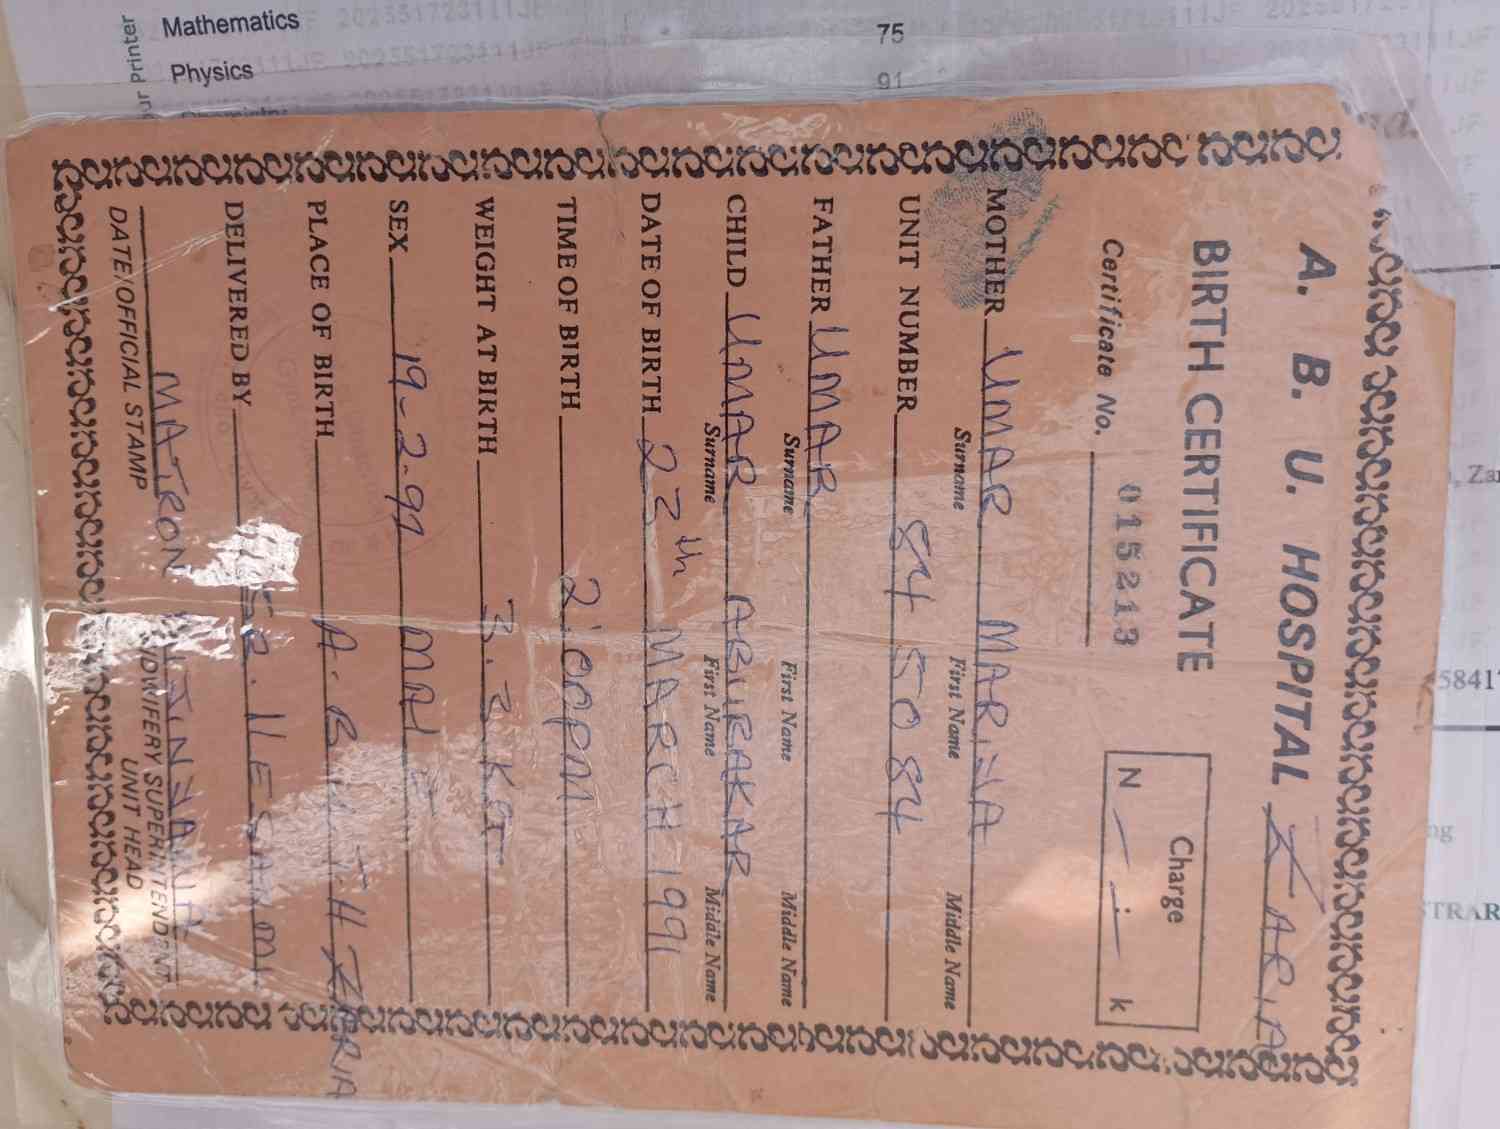 Mathematics 75
Physics 91
Chemistry
ur Printer
A. B. U. HOSPITAL ZARIA
BIRTH CERTIFICATE
Charge
Certificate No. 015213
N — : — k
MOTHER UMAR MARIYA
Surname First Name Middle Name
UNIT NUMBER 84 50 84
FATHER UMAR
Surname First Name Middle Name
CHILD UMAR ABUBAKAR
Surname First Name Middle Name
DATE OF BIRTH 23th MARCH 1991
TIME OF BIRTH 2:00PM
WEIGHT AT BIRTH 3.3KG
SEX MALE
19-2-97
PLACE OF BIRTH A.B.U.T.H ZARIA
DELIVERED BY ILESANMI
MATRON
DATE/OFFICIAL STAMP
MIDWIFERY SUPERINTENDENT
UNIT HEAD
, Zar
58417
ng
STRAR